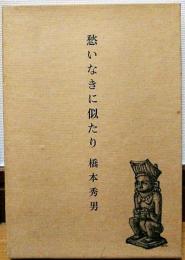 愁いなきに似たり 橋本秀男